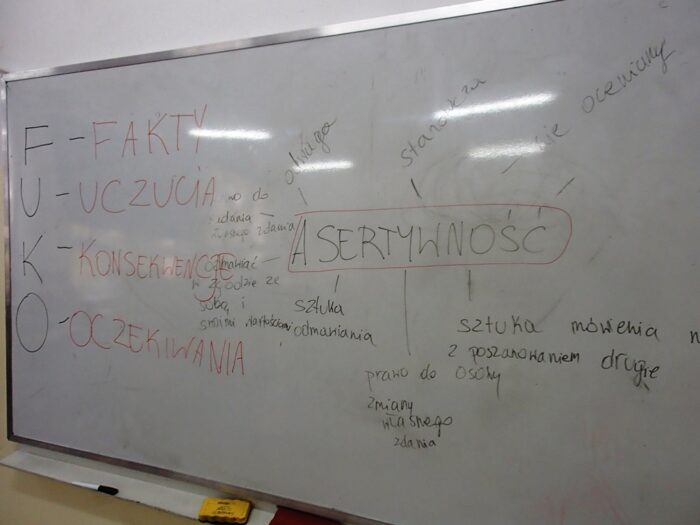 F - FAKTY
U - UCZUCIA
K - KONSEKWENCJE
O - OCZEKIWANIA
odwaga
stanowcza
nie oceniamy
ASERTYWNOŚĆ
do
zdania
odmawiać
w zgodzie ze
sobą i
swoimi wartościami
sztuka
odmawiania
prawo do
zmiany
własnego
zdania
sztuka mówienia n
z poszanowaniem drugie
osoby